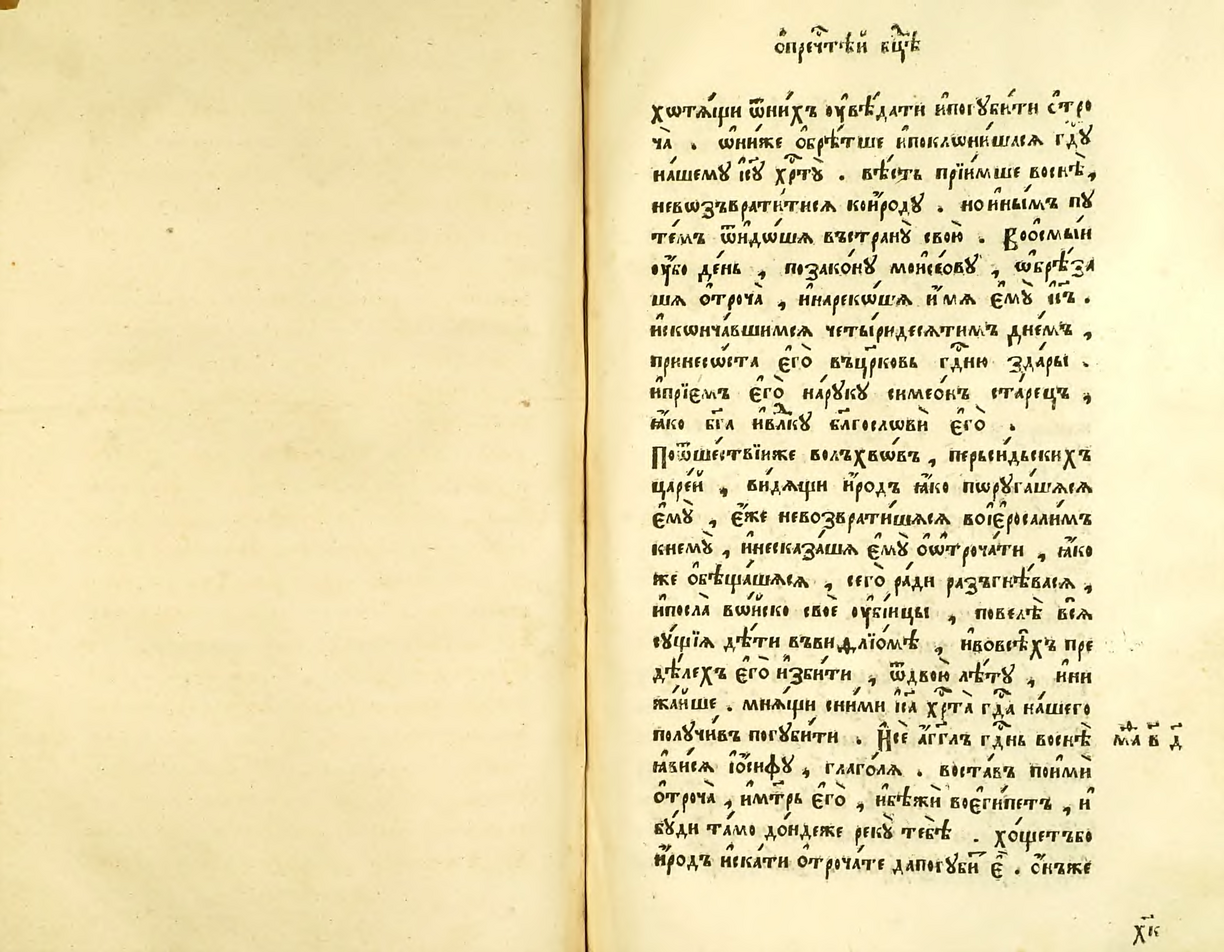 ѻ҆пречⷭ҇тѣй бцⷣѣ
хѡтѧ́щи ѿни́хъ ᲂу҆вѣ́дати и҆погꙋби́ти ѻ҆тро
ча̀ . ѡ҆ни́же ѻ҆брѣ́тше и҆поклѡни́шасѧ гдⷭ҇ꙋ
на́шемꙋ і҆с꙽ꙋ хрⷭ҇тꙋ̀ . вѣ́сть прїи́мше восн꙽ѣ̀ ,
невѡзъврати́тисѧ кои́родꙋ . нои҆ны́мъ пꙋ
те́мъ ѿидо́шѧ въстранꙋ̀ свою̀ . Воѻ҆смы́и
ᲂу҆́бо де́нь , позако́нꙋ мои҆се́ѻвꙋ , ѡ҆брѣ́за
шѧ ѻ҆троча̀ , и҆нареко́шѧ и҆́мѧ є҆мꙋ̀ і҆с꙽ъ .
и҆скѡнча́вшимсѧ четы́ридесѧтимъ дне́мъ ,
принесѡ́ста є҆го̀ въцр꙽ковь гдⷭ҇ню здары̀ .
и҆прїе́мъ є҆го̀ на́рꙋкꙋ симео́нъ ста́рецъ ,
ꙗ҆́ко бг꙽а и҆влⷣкꙋ бл꙽гослѡвѝ є҆го̀ .
Поѿше́ствїиже волъхво́въ , перьси́дьскихъ
царе́й , ви́дѧщи и҆́родъ ꙗ҆́ко пѡрꙋга́шѧсѧ
є҆мꙋ̀ , є҆́же невозврати́шѧсѧ воіє҆росали́мъ
кнемꙋ̀ , и҆несказа́шѧ є҆мꙋ̀ ѻ҆ѡ҆троча́ти , ꙗ҆́ко
же ѻ҆бѣща́шѧсѧ , сего̀ ра́ди разъгнѣ́васѧ ,
и҆посла̀ во́йско своѐ ᲂу҆бі́ицы , повелѣ̀ всѧ̀
сꙋ́щїѧ дѣ́ти въвиѳлїо́мѣ , и҆вовсѣ́хъ пре
дѣ́лехъ є҆го̀ и҆зби́ти , ѿдвою̀ лѣ́тꙋ , и҆ни
жа́йше . мнѧ́щи сни́ми і҆с꙽а хрⷭ҇та̀ гдⷭ҇а на́шего
полꙋчи́въ погꙋби́ти . И҆сѐ а҆́гг꙽лъ гдⷭ҇нь восн꙽ѣ̀
ꙗ҆ви́сѧ і҆ѻ҆́сифꙋ , глаго́лѧ . воста́въ поимѝ
ѻ҆троча̀ , и҆мт҃рь є҆го̀ , и҆бѣжѝ воє҆ги́петъ , и҆
бꙋ́ди та́мо до́ндеже рекꙋ̀ тебѣ̀ . хо́щетъбо
и҆́родъ и҆ска́ти ѻ҆троча́те дапогꙋби́т є҆̀ . ѻ҆́нъже
мⷴ꙽а в҃ д҃
хк҃